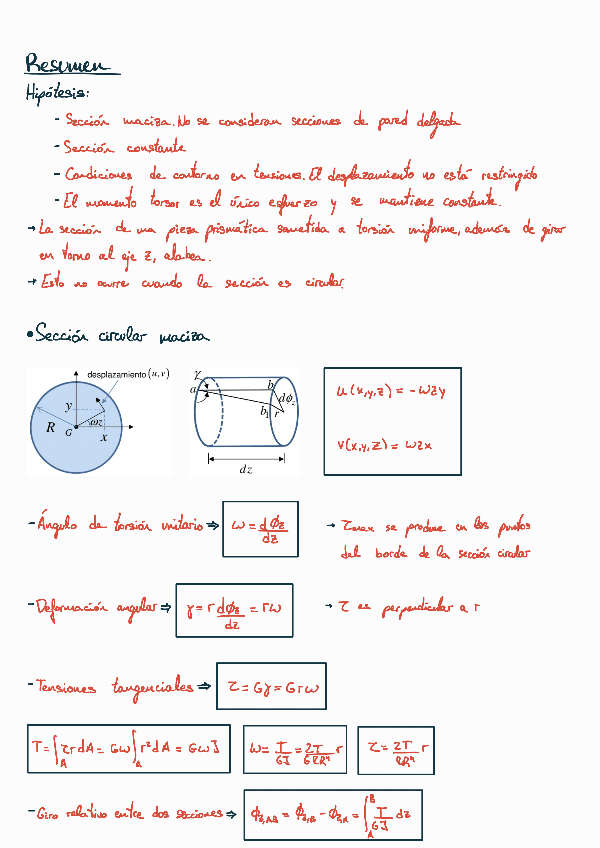 Resumen
Hipótesis:
- Sección maciza. No se consideran secciones de pared delgada
- Sección constante
- Condiciones de contorno en tensiones. El desplazamiento no está restringido
- El momento torsor es el único esfuerzo y se mantiene constante.
→ La sección de una pieza prismática sometida a torsión uniforme, además de girar
en torno al eje z, alabea.
→ Esto no ocurre cuando la sección es circular.
• Sección circular maciza
desplazamiento (u, v)
y
R
G
ωz
x
γ
a
b
dϕz
b1
r
dz
u(x,y,z) = -ωzy
v(x,y,z) = ωzx
- Ángulo de torsión unitario ⇒ ω = dϕz/dz
→ τmax se produce en los puntos
del borde de la sección circular
- Deformación angular ⇒ γ = r dϕz/dz = rω
→ τ es perpendicular a r
- Tensiones tangenciales ⇒ τ = Gγ = Grω
T = ∫A τrdA = Gω ∫A r²dA = GωJ
ω = T/GJ = 2T/GπR⁴ r
τ = 2T/πR⁴ r
- Giro relativo entre dos secciones ⇒ ϕz,AB = ϕz,B - ϕz,A = ∫A^B T/GJ dz